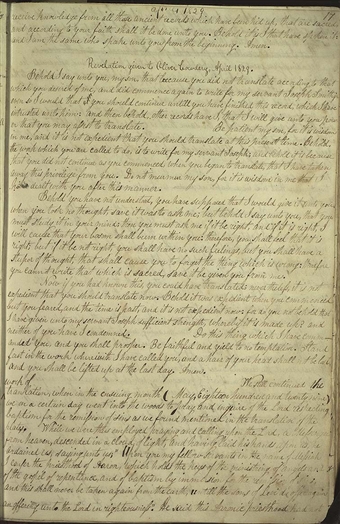 1829. 17
receive knowledge from all those ancient records which have been hid up, that are sacred
and according to your faith shall it be done unto you. Behold it is I that have spoken it
and I am the same who spake unto you from the beginning. Amen.
Revelation given to Oliver Cowdery, April 1829.
Behold I say unto you, my son, that because you did not translate according to that
which you desired of me, and did commence again to write for my servant Joseph Smith
even so I would that you should continue until you have finished this record, which I have
intrusted unto him: and then behold, other records have I, that I will give unto you power
that you may assist to translate. Be patient my son, for it is wisdom
in me, and it is not expedient that you should translate at this present time. Behold
the work which you are called to do, is to write for my servant Joseph; and behold it is because
that you did not continue as you commenced, when you began to translate, that I have taken
away this privilege from you. Do not murmur my son, for it is wisdom in me that I
have dealt with you after this manner.
Behold you have not understood, you have supposed that I would give it unto you
when you took no thought, save it was to ask me; but behold I say unto you, that you
must study it out in your mind; then you must ask me if it be right, and if it is right, I
will cause that your bosom shall burn within you: therefore, you shall feel that it is
right; but if it be not right, you shall have no such feelings, but you shall have a
stupor of thought, that shall cause you to forget the thing which is wrong: therefore
you cannot write that which is sacred, save it be given you from me.
Now if you had known this, you could have translated: nevertheless it is not
expedient that you should translate now. Behold it was expedient when you commenced
but you feared, and the time is past, and it is not expedient now: for do you not behold that
I have given unto my servant Joseph sufficient strength, whereby it is made up? and
neither of you have I condemned. Do this thing which I have comm-
anded you and you shall prosper. Be faithful and yield to no temptation. Stand
fast in the work wherewith I have called you, and a hair of your head shall not be lost
and you shall be lifted up at the last day. Amen.
We still continued the
work of
translation, when in the ensuing month (May, Eighteen hundred and twenty nine)
we on a certain day went into the woods to pray and inquire of the Lord respecting
baptism for the remission of sins as we found mentioned in the translation of the
plates. While we were thus employed praying and calling upon the Lord, a Messenger
from heaven, descended in a cloud of light, and having laid his hands upon us, he
ordained us, saying unto us; "Upon you my fellow servants in the name of Messiah
I confer the priesthood of Aaron, which holds the keys of the ministring of angels and
of the gospel of repentance, and of baptism by immersion for the remission of sins
and this shall never be taken again from the earth, until the sons of Levi do offer again
an offering unto the Lord in righteousness." He said this Aaronic priesthood had not